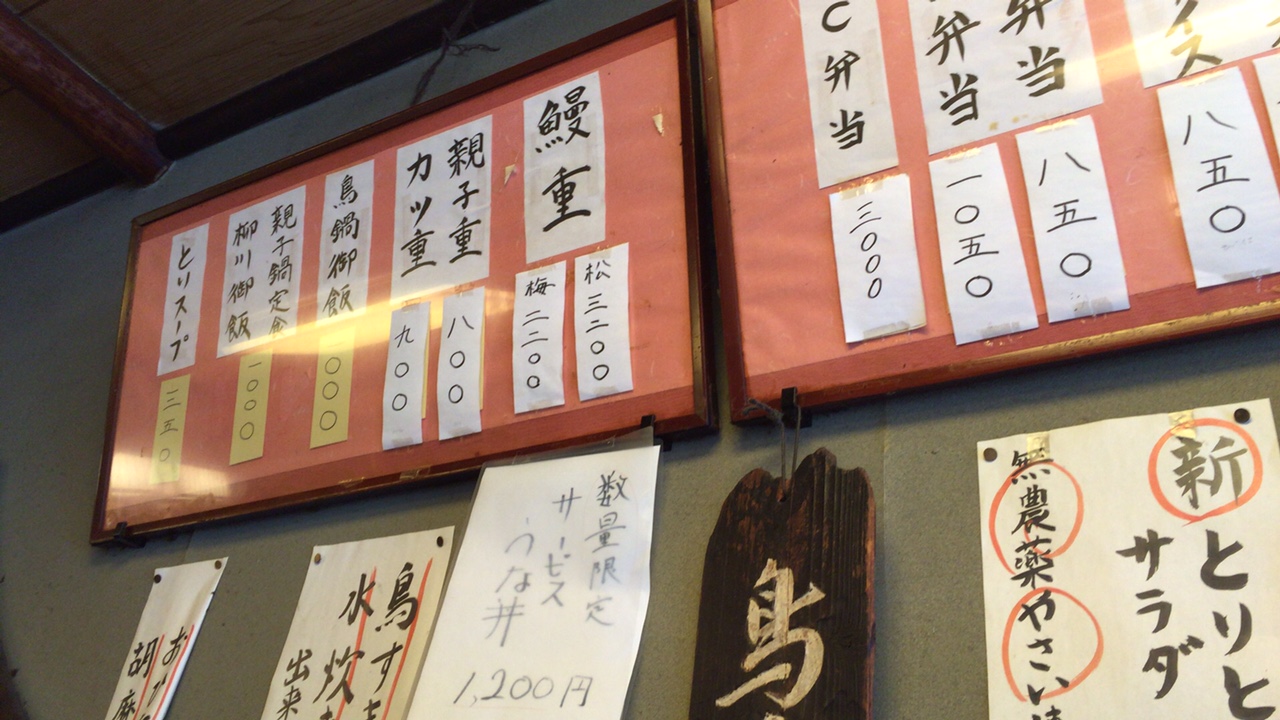 鰻重
松 三二〇〇
梅 二二〇〇
親子重
八〇〇
カツ重
九〇〇
鳥鍋御飯
一〇〇〇
親子鍋定食
柳川御飯
一〇〇〇
とりスープ
三五〇
八五〇
弁当
八五〇
弁当
一〇五〇
C弁当
三〇〇〇
新
とりと
サラダ
無農薬やさい
鳥
数量限定
サービス
うな丼
1,200円
鳥す
水炊
出来
胡麻